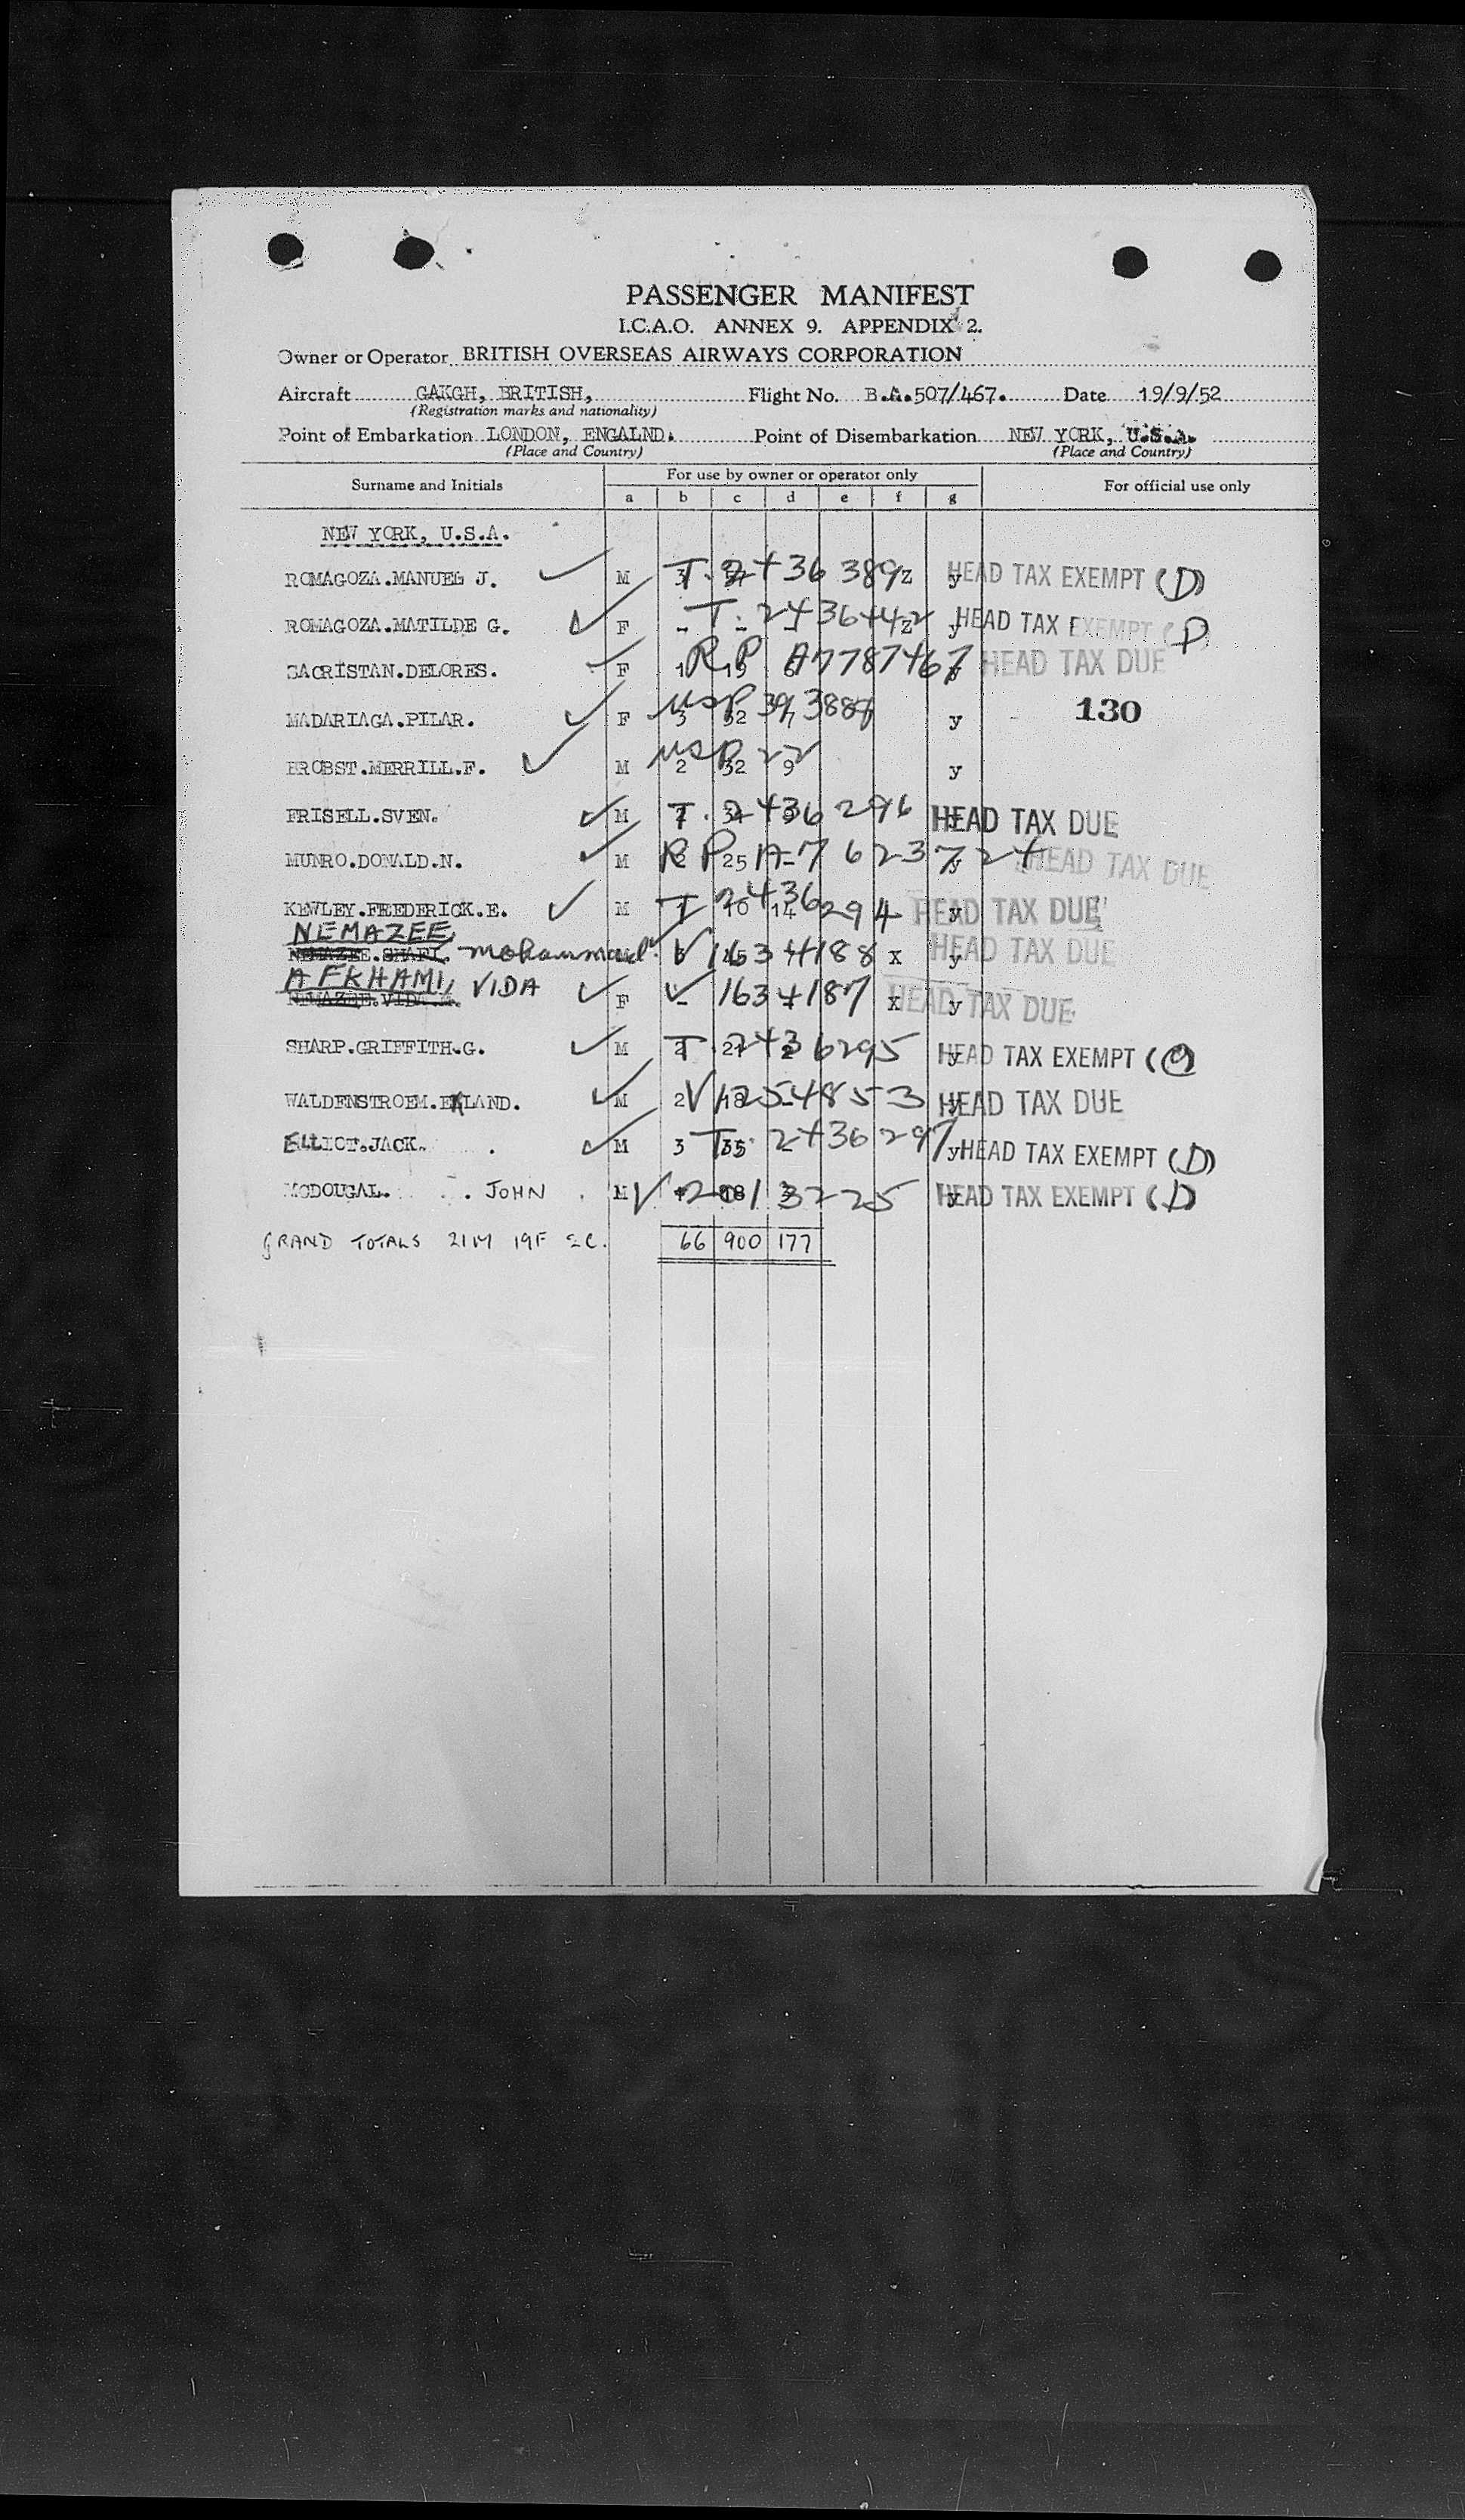 PASSENGER MANIFEST
I.C.A.O. ANNEX 9. APPENDIX 2.
Owner or Operator BRITISH OVERSEAS AIRWAYS CORPORATION
Aircraft GAKGH, BRITISH, Flight No. B.A.507/467. Date 19/9/52
(Registration marks and nationality)
Point of Embarkation LONDON, ENGALND. Point of Disembarkation NEW YORK, U.S.A.
(Place and Country) (Place and Country)
Surname and Initials For use by owner or operator only For official use only
a b c d e f g
NEW YORK, U.S.A.
ROMAGOZA.MANUEL J. M T. 2436 389 z y HEAD TAX EXEMPT (D)
ROMAGOZA.MATILDE G. F - T. 2436442 z y HEAD TAX EXEMPT (D
SACRISTAN.DELORES. F 1 RP 19 A7787467 HEAD TAX DUE
MADARIAGA.PILAR. F 3 USP 32 7 y 130
BROBST.MERRILL.F. M 2 USP 32 9 22 y
FRISELL.SVEN. M T. 2436 296 HEAD TAX DUE
MUNRO.DONALD.N. M 2 RP 25 A-7623724 y HEAD TAX DUE
KEWLEY.FREDERICK.E. M T 10 14 2436294 y HEAD TAX DUE
NEMAZEE,
NEMAZEE.SHAFI. Mohammad V 1634188 x y HEAD TAX DUE
AFKHAMI, VIDA
NEMAZEE.VIDA F - 1634187 x y HEAD TAX DUE
SHARP.GRIFFITH.G. M T 21 2436295 y HEAD TAX EXEMPT
WALDENSTROEM.EKLAND. M 2 V 18 1254853 y HEAD TAX DUE
ELLIOT.JACK. M 3 T 35 2436297 y HEAD TAX EXEMPT (D)
MCDOUGAL. JOHN M V 2013225 y HEAD TAX EXEMPT (D)
GRAND TOTALS 21M 19F 2C. 66 900 177